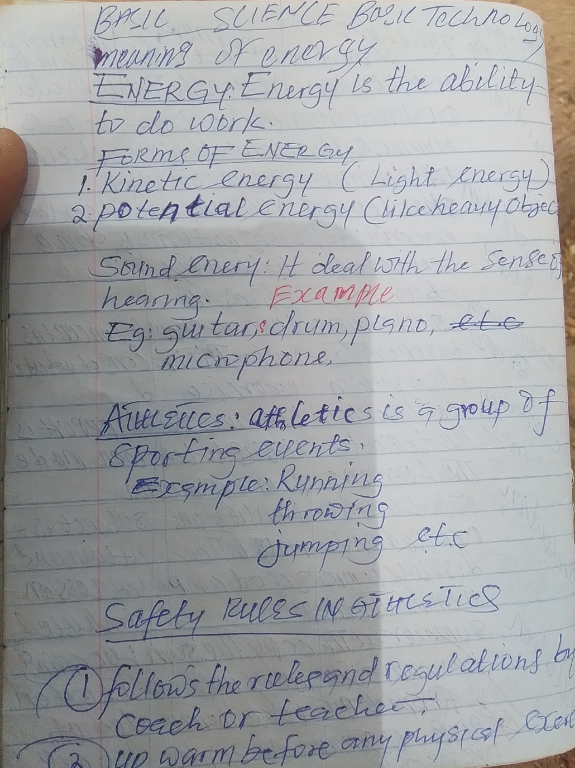 BASIC SCIENCE Basic Technology
meaning of energy
ENERGY: Energy is the ability
to do work.
FORMS OF ENERGY
1. Kinetic energy (Light energy)
2. potential energy (like heavy Objec
Sound enery: It deal with the Sense of
hearing. Example
Eg: guitar, drum, piano, etc
microphone.
Athletics: athletics is a group of
Sporting events.
Example: Running
throwing
jumping etc
Safety RULES IN ATHLETICS
1 follows the rules and regulations by
coach or teacher.
2 up warm before any physical exer